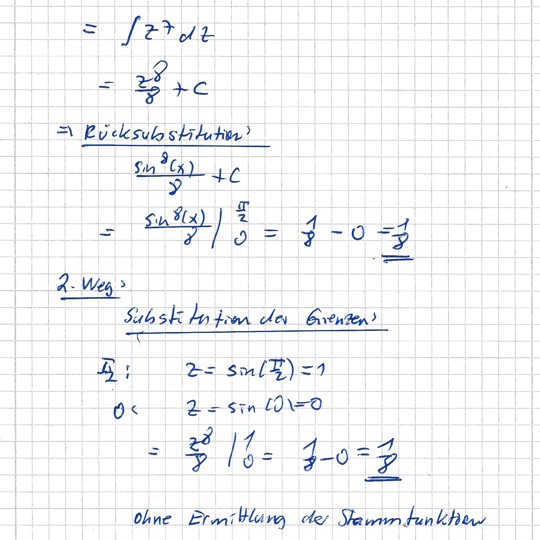 = ∫ z⁷ dz
= z⁸/8 + C
⇒ Rücksubstitution:
sin⁸(x)/8 + C
= sin⁸(x)/8 |₀^(π/2) = 1/8 - 0 = 1/8
2. Weg:
Substitution der Grenzen:
π/2: z = sin(π/2) = 1
0: z = sin(0) = 0
= z⁸/8 |₀¹ = 1/8 - 0 = 1/8
ohne Ermittlung der Stammfunktion